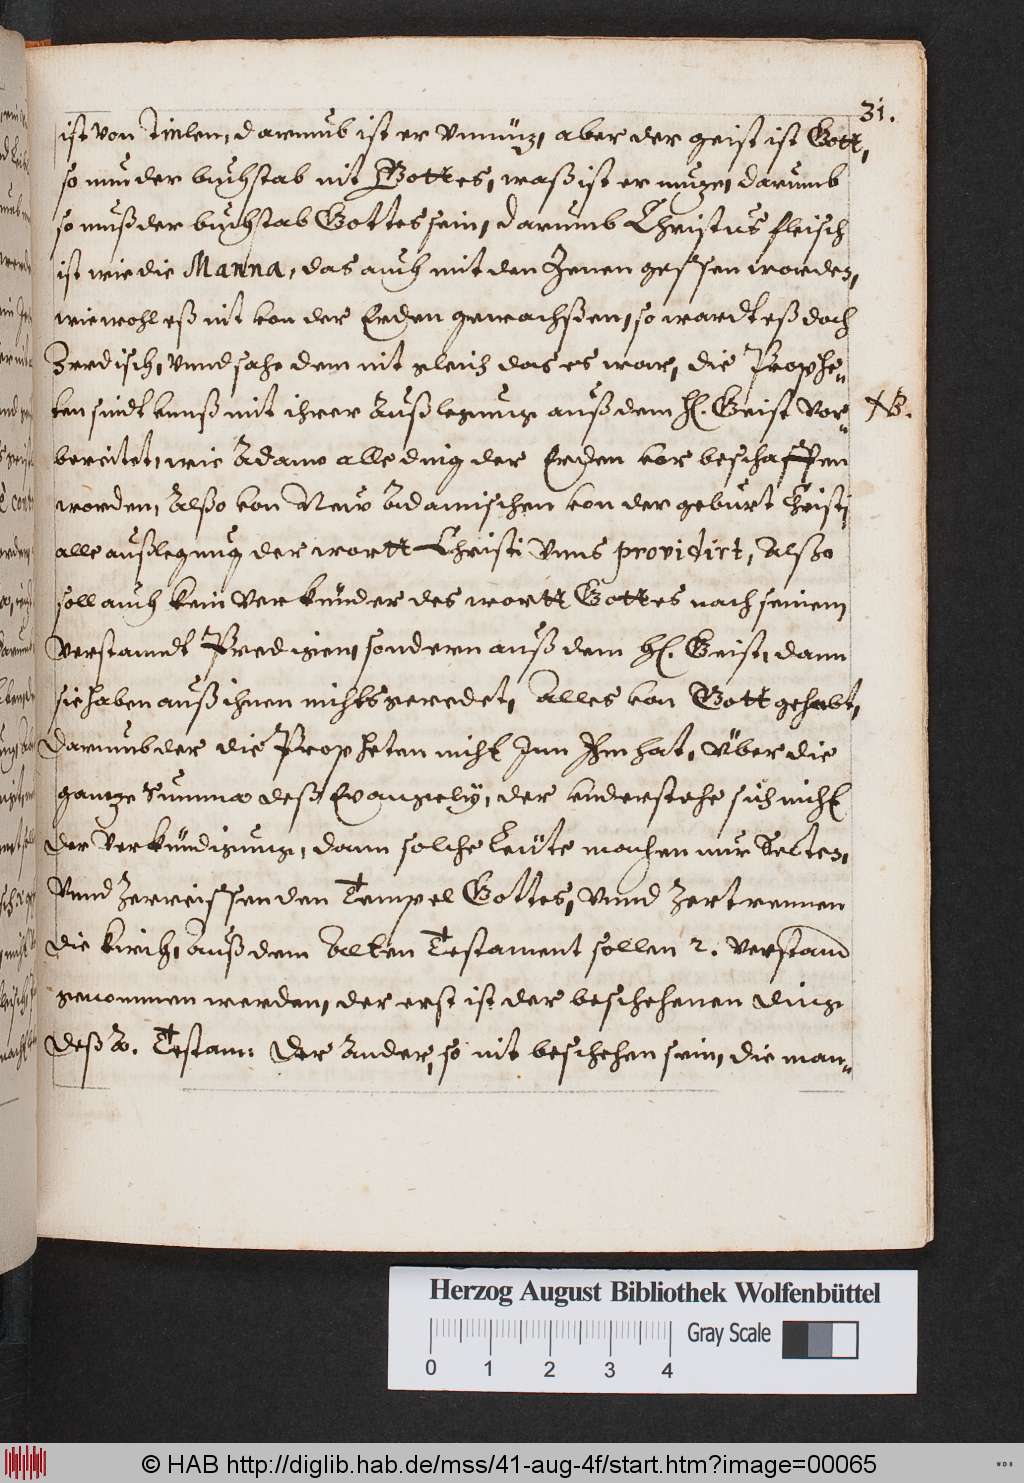 31.
ist von Juden, darumb ist er unnuz, aber der geist ist Gott,
so nun der buchstab nit Gottes, waß ist er nuze, darumb
so muß der buchstab Gottes sein, darumb Christus fleisch
ist wie die Manna, das auch mit den Zenen gessen worden,
wiewohl eß nit von der Erden gewachßen, so wardt eß doch
Irrdisch, unnd sahe dem nit gleich das es war, die Prophe„
ten sindt unnß mit ihrer Außlegung auß dem H. Geist Vor„
NB.
bereitet, wie Adamo alle ding der Erden vor beschaffen
worden, Alßo von New Adamischen von der geburt Christi
alle außlegung der wortt Christi Unns providirt, Alßo
soll auch kein Verkünder des wortt Gottes nach seinem
Verstandt Predigen, sondern auß dem H. Geist, dann
sie haben auß ihnen nichts geredet, Alles von Gott gehabt,
Darumb der die Propheten nicht Inn Ihm hat, Über die
gantze Summa deß Evangelÿ, der understehe sich nicht
der Verkündigung, dann solche Leüte machen nur Secten,
Unnd Zerreissen den Tempel Gottes, Unnd Zertrennen
die Kirch, Auß dem Alten Testament sollen 2. Verstand
genommen werden, der erst ist der beschehenen Ding
deß A. Testam: Der Ander, so nit beschehen sein, die man„
Herzog August Bibliothek Wolfenbüttel
Gray Scale
0 1 2 3 4
© HAB http://diglib.hab.de/mss/41-aug-4f/start.htm?image=00065